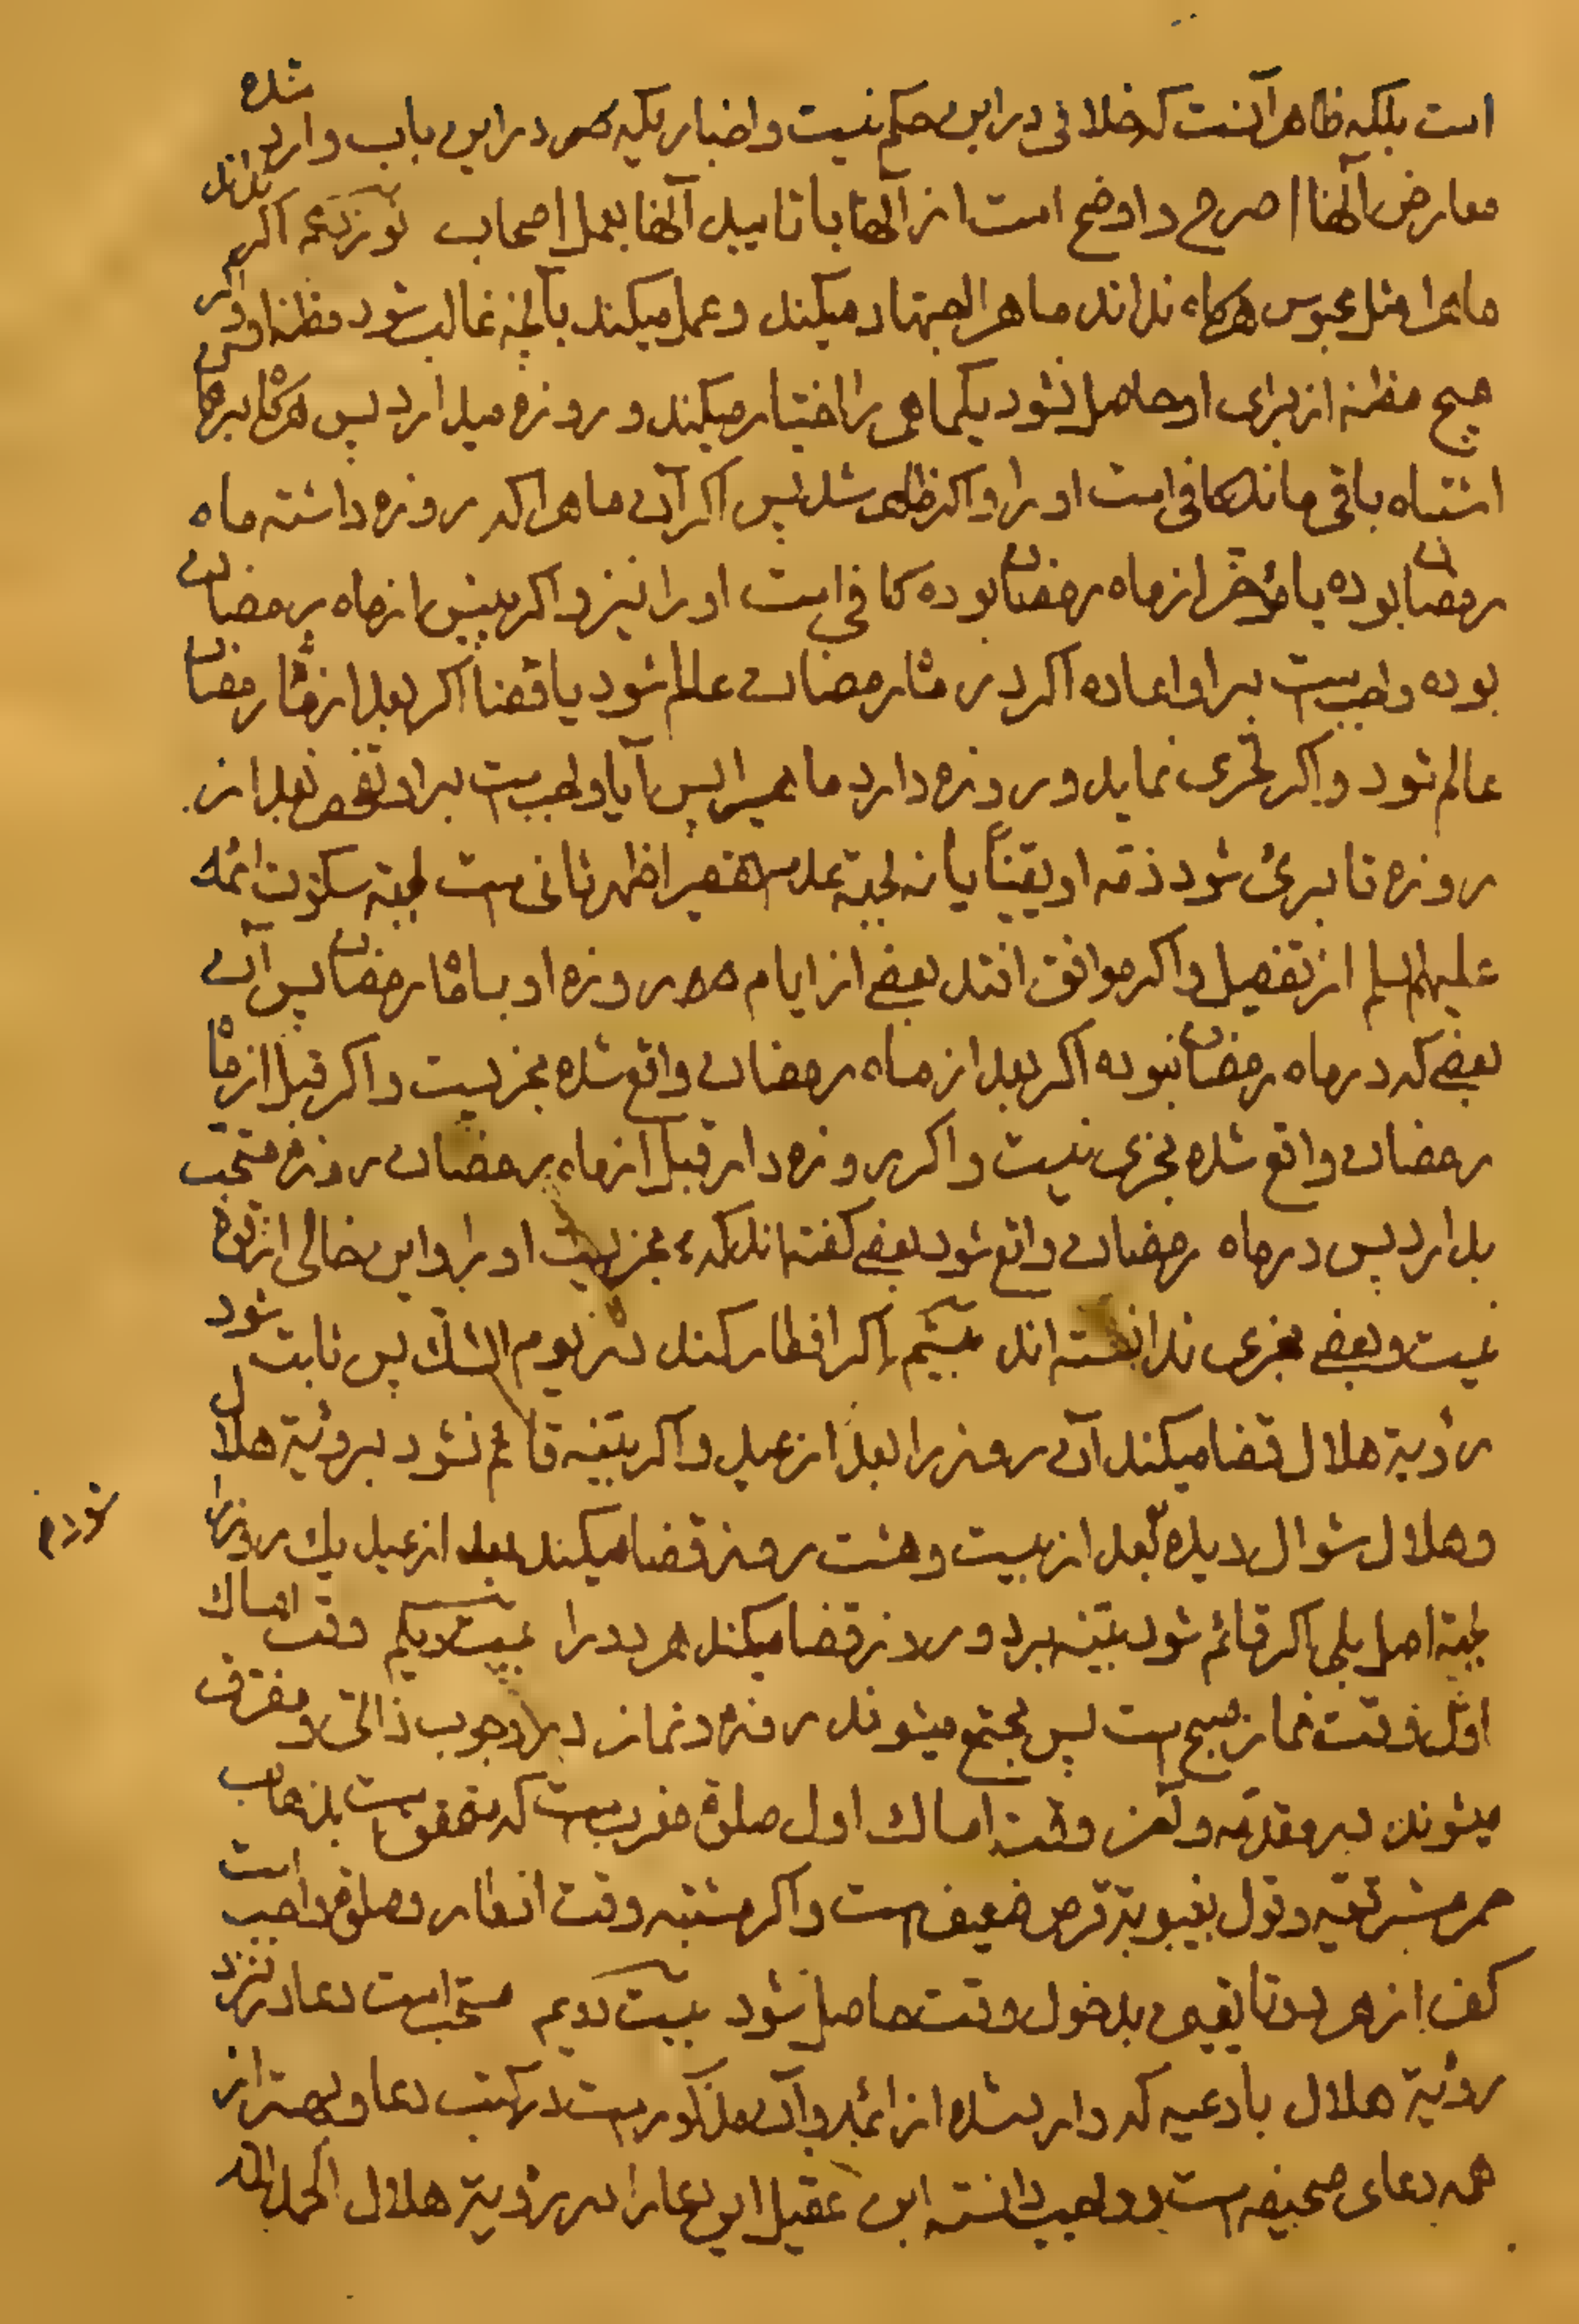 است بلکه ظاهر آنست که خلافی در این حکم نیست و اخباریکه در این باب وارد شده
معارض آنها اصرح و اوضح است از آنها با تاییل آنها بعمل اصحاب نوزدهم اکر نداند
ماه را مثل محبوس هرکاه نداند ماه را اجتهاد میکند و عمل میکند بآنچه غالب شود مظنه او و اکر
هیچ مظنه از برای او حاصل نشود یکماهی را اختیار میکند و روزه میدارد پس هرکاه بر
اشتباه باقی ماند کافی است او را و اکر ظاهر شد پس اکر آن ماهرا که روزه داشته ماه
رمضان بوده یا مؤخر از ماه رمضان بوده کافی است او را نیز و اکر پیش از ماه رمضان
بوده واجبست بر او اعاده اکر در ماه رمضان عالم شود یا قضا اکر بعد از ماه رمضان
عالم شود و اکر تحری نماید و روزه دارد ماهیرا پس آیا واجبست بر او تفحص بعد از
روزه تا برئ شود ذمّه او یقیناً یا نه بجهة عدم تقصیر اظهر ثانی است بجهة سکوت ائمه
علیهم السلم از تفصیل و اکر موافق افتد بعضی از ایام روزه او با ماه رمضان پس آن
بعضی که در ماه رمضان نبوده اکر بعد از ماه رمضان واقع شده مجزیست و اکر قبل از ماه
رمضان واقع شده مجزی نیست و اکر روزه دار قبل از ماه رمضان روزه مستحب
بدارد پس در ماه رمضان واقع شود بعضی کفته اند که مجزیست او را و این خالی از قوة
نیست و بعضی مجزی ندانسته اند بیستم اکر افطار کند در یوم الشک پس ثابت شود
رؤیة هلال قضا میکند آن روز را بعد از عید و اکر بیّنه قائم نشود برویة هلال
و هلال شوال دیده بعد از بیست و هشت روز قضا میکند بعد از عید یک روز را
بجهة اصل بلی اکر قائم شود بیّنه بر دو روز قضا میکند هر دو را بیست و یکم وقت امساک
اوّل وقت نماز صبح است پس مجتمع میشوند روزه و نماز در وجوب ذاتی و مفترق
میشوند در مقدمه و آخر وقت امساک اول صلوة مغربست که متحقق است بذهاب
حمره مشرقیّه و قول بغیبوبة قرص ضعیف است و اکر مشتبه وقت افطار و صلوة واجب است
کف از هر دو تا یقین بدخول وقت حاصل شود بیست دویم مستحب است دعا در نزد
رؤیة هلال بادعیه که وارد شده از ائمه و آن مذکور است در کتب دعا و بهتر از
همه دعای صحیفه است و واجب دانسته ابن عقیل این دعا را در رؤیة هلال الحمد لله
شود م